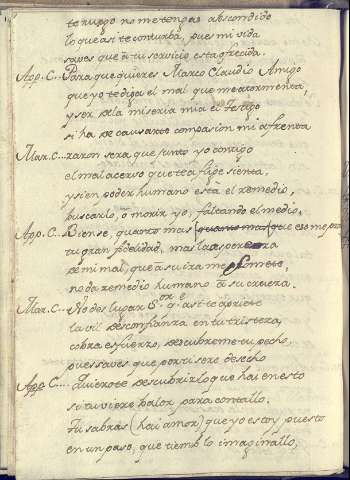 te ruego no me tengas abscondido
lo que asi te conturba, pues mi vida
saves que à tu servicio està ofrecida.
App. C... Para que quieres Marco Claudio Amigo
que yo te diga el mal que me atormenta,
y ser de la miseria mia el testigo
si ha de causarte compasion mi afrenta
Mar. C... razon sera que junto yo contigo
el mal acervo que te aflige sienta,
y si en poder humano està el remedio,
buscarlo, o morir yo, faltando el medio.
App. C... Piense, quanto mas (quanto mas) que eso me
tu gran fidelidad, mas la aspereza
de mi mal, que à su ira me somete,
no da remedio humano à su crueza.
Mar. C... No des lugar Sor. q. asi te apriete
la vil desconfianza en tu tristeza,
cobra esfuerzo, descubreme tu pecho,
pues saves que por ti sere desecho
App. C... Quierote descubrir lo que hai en esto
si tuviere valor para contallo.
Tu sabras (hai amor) que yo estoy puesto
en un paso, que tiemblo imaginallo,